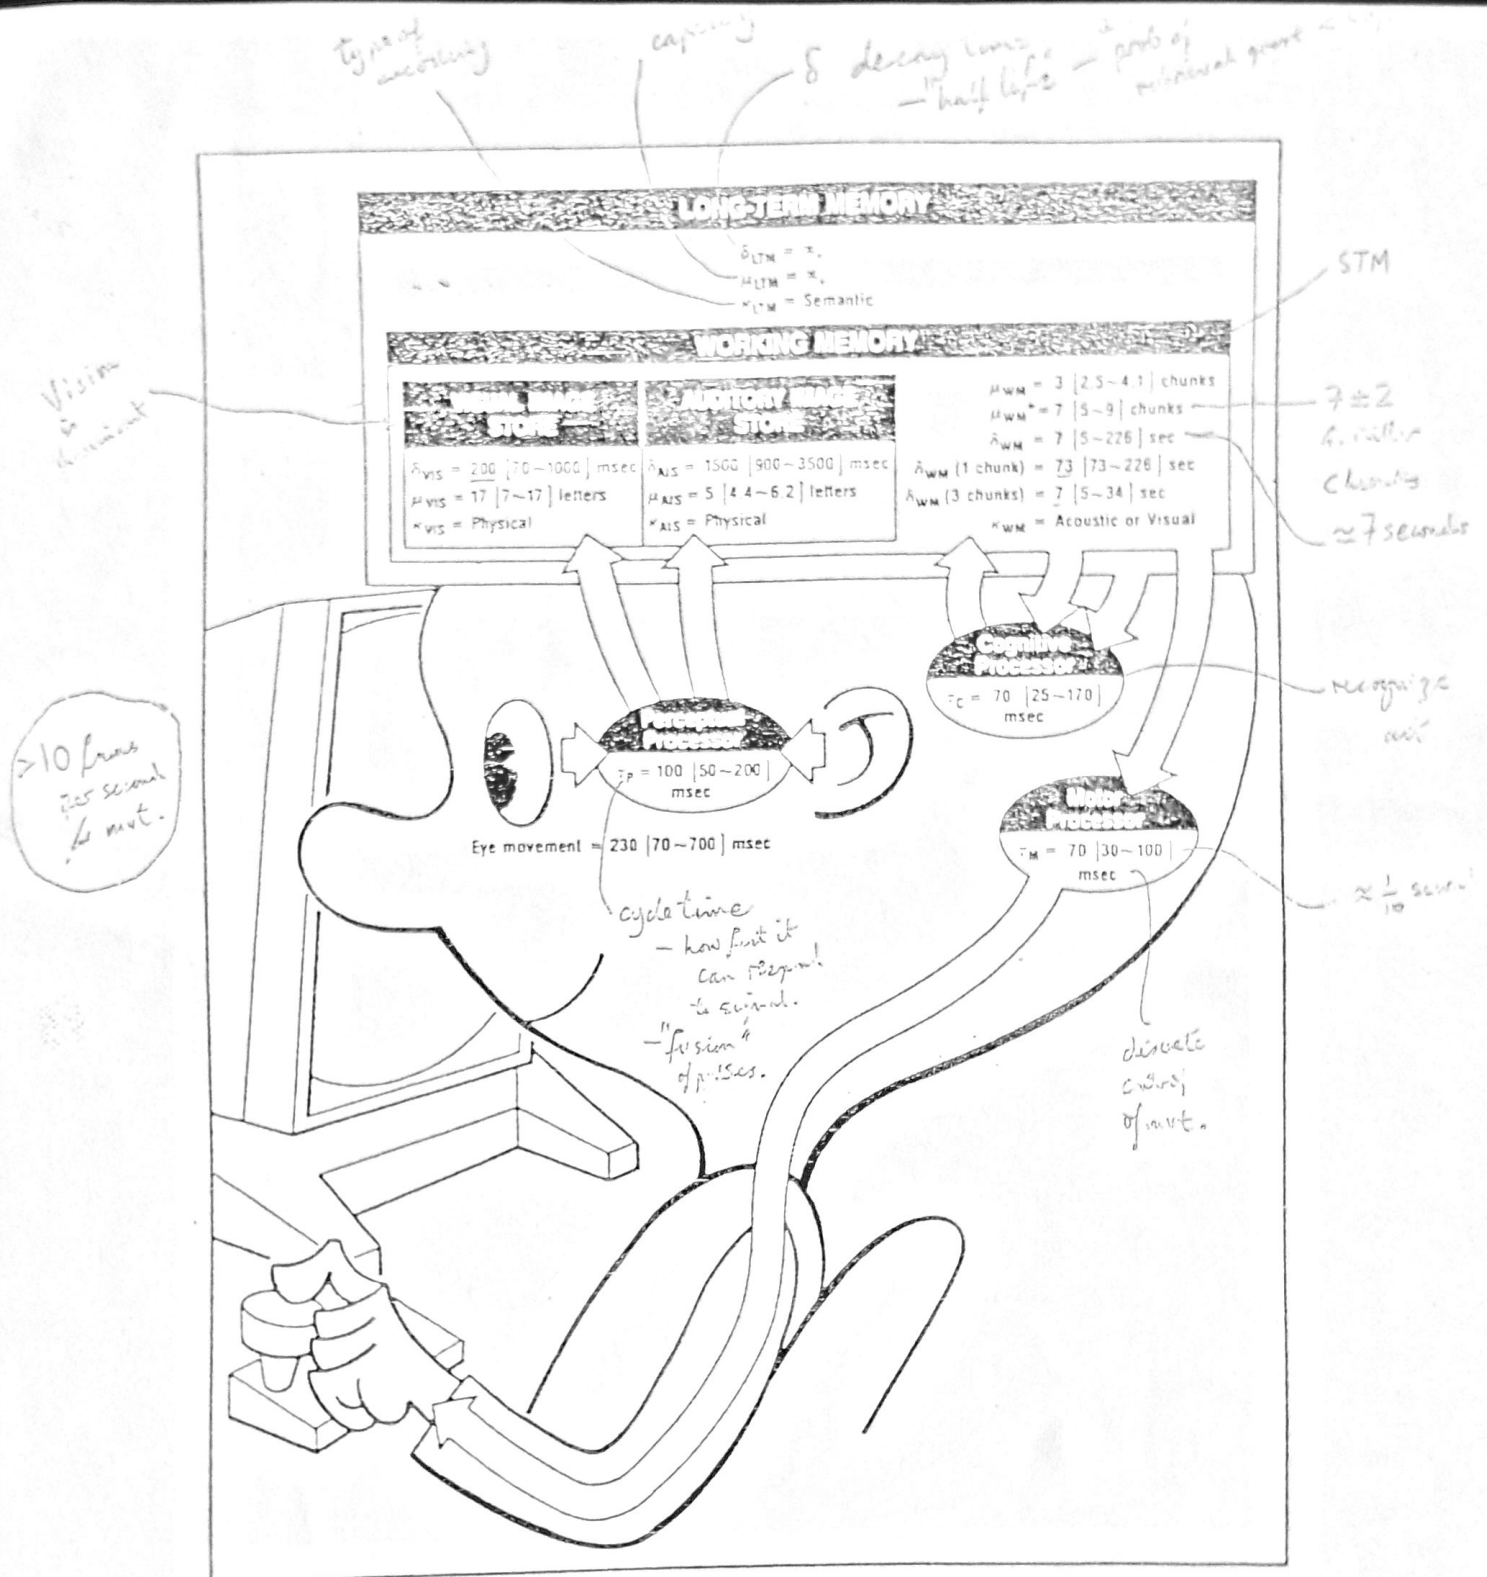 type of
encoding
capacity
δ decay time
— "half life" — prob of
retrieval
LONG-TERM MEMORY
δLTM = ∞,
μLTM = ∞,
κLTM = Semantic
STM
WORKING MEMORY
Vision
is
dominant
VISUAL IMAGE
STORE
δVIS = 200 [70~1000] msec
μVIS = 17 [7~17] letters
κVIS = Physical
AUDITORY IMAGE
STORE
δAIS = 1500 [900~3500] msec
μAIS = 5 [4.4~6.2] letters
κAIS = Physical
μWM = 3 [2.5~4.1] chunks
μWM* = 7 [5~9] chunks
δWM = 7 [5~226] sec
δWM (1 chunk) = 73 [73~226] sec
δWM (3 chunks) = 7 [5~34] sec
κWM = Acoustic or Visual
7 ± 2
Miller
Chunking
≃ 7 seconds
Cognitive
Processor
τC = 70 [25~170]
msec
recognize
act
Perceptual
Processor
τP = 100 [50~200]
msec
Eye movement = 230 [70~700] msec
Motor
Processor
τM = 70 [30~100]
msec
≈ 1/10 second
>10 frames
per second
for mvt.
cycle time
— how fast it
can respond
to signal.
— "fusion"
of pulses.
discrete
control
of mvt.